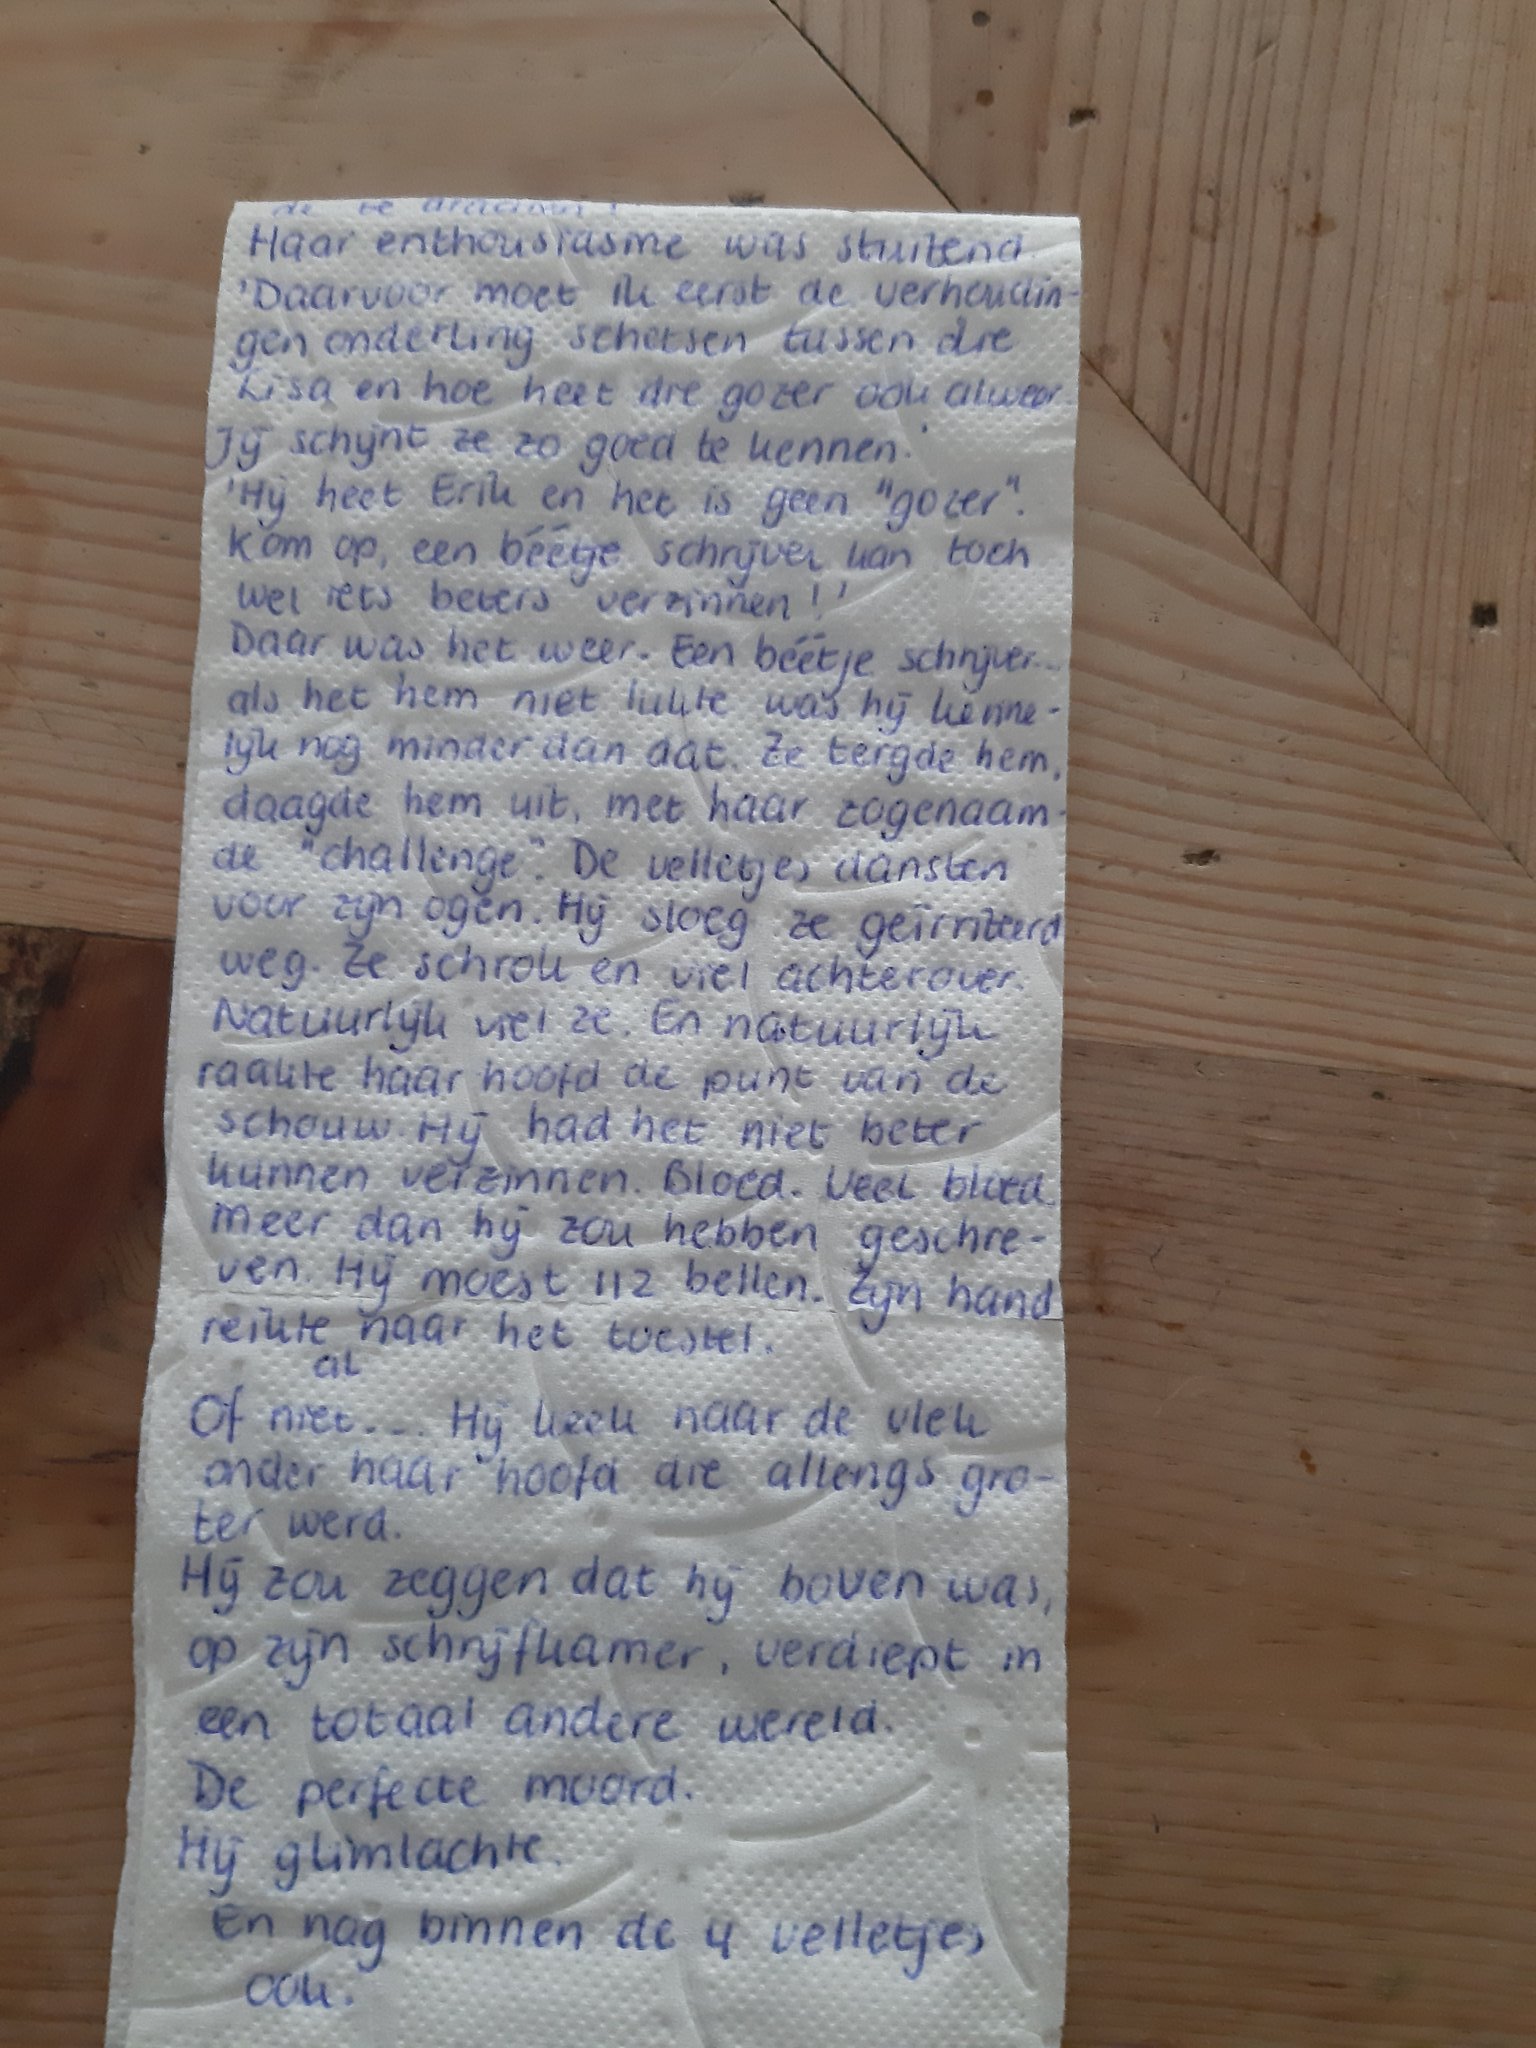 Haar enthousiasme was stuitend.
'Daarvoor moet ik eerst de verhoudin-
gen onderling schetsen tussen die
Lisa en hoe heet die gozer ook alweer.
Jij schijnt ze zo goed te kennen.'
'Hij heet Erik en het is geen "gozer".
Kom op, een béétje schrijver kan toch
wel iets beters verzinnen!'
Daar was het weer. Een béétje schrijver...
als het hem niet lukte was hij kenne-
lijk nog minder dan dat. Ze tergde hem,
daagde hem uit, met haar zogenaam-
de "challenge". De velletjes dansten
voor zijn ogen. Hij sloeg ze geïrriteerd
weg. Ze schrok en viel achterover.
Natuurlijk viel ze. En natuurlijk
raakte haar hoofd de punt van de
schouw. Hij had het niet beter
kunnen verzinnen. Bloed. Veel bloed.
Meer dan hij zou hebben geschre-
ven. Hij moest 112 bellen. Zijn hand
reikte naar het toestel.
al
Of niet... Hij keek naar de vlek
onder haar hoofd die allengs gro-
ter werd.
Hij zou zeggen dat hij boven was,
op zijn schrijfkamer, verdiept in
een totaal andere wereld.
De perfecte moord.
Hij glimlachte.
En nog binnen de 4 velletjes
ook.